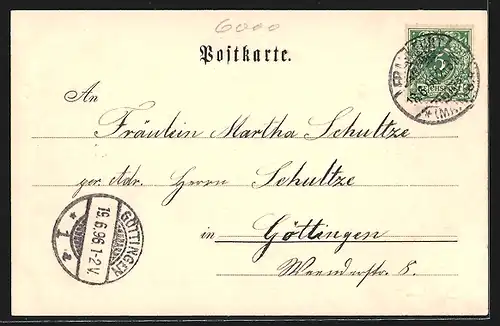 6000
Postkarte.
An
Fräulein Martha Schultze
per. Adr. Herrn Schultze
in Göttingen
Weenderstr. 8.
GÖTTINGEN
19.6.96.1-2V.
* 1 a *
FRANKFURT
(MAIN)
5